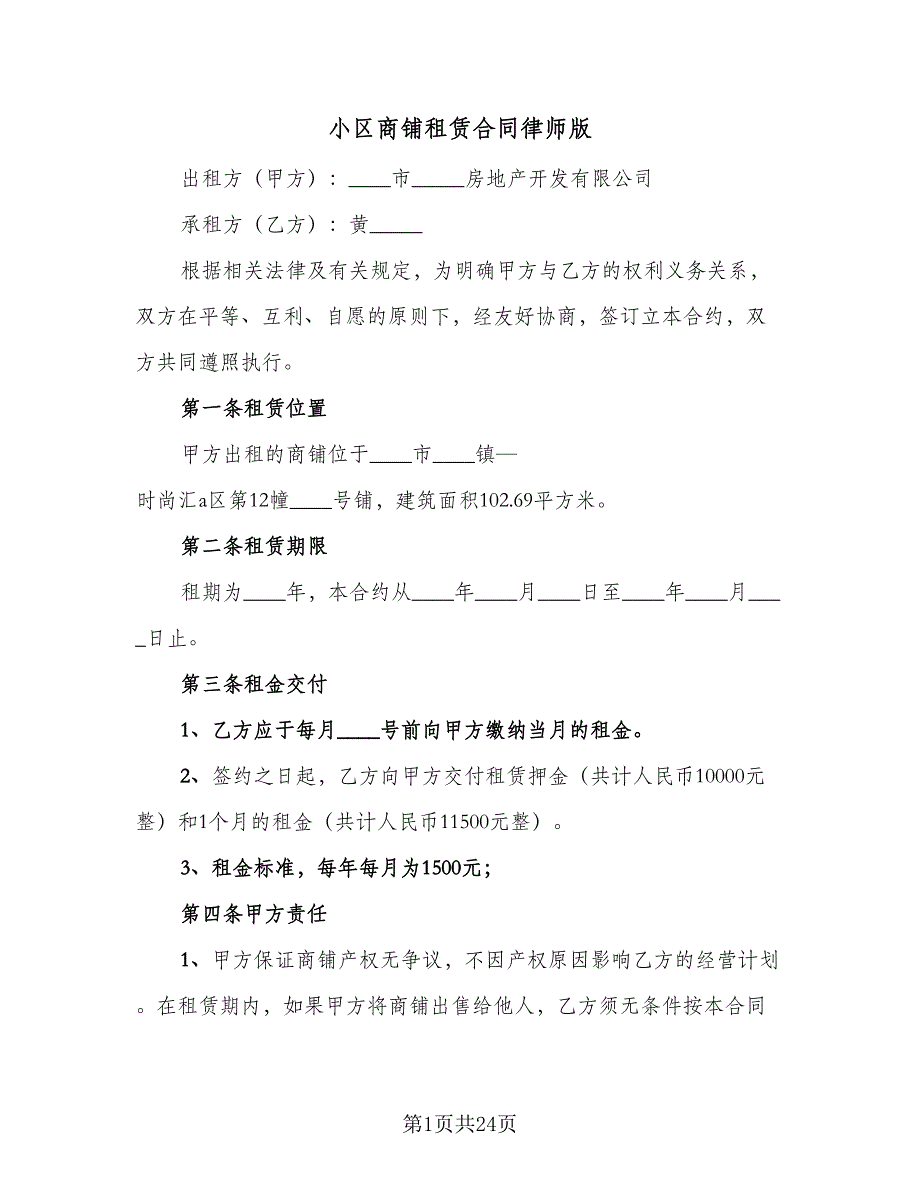 小区商铺租赁合同律师版
出租方（甲方）：____市_____房地产开发有限公司
承租方（乙方）：黄_____
根据相关法律及有关规定，为明确甲方与乙方的权利义务关系，
双方在平等、互利、自愿的原则下，经友好协商，签订立本合约，双
方共同遵照执行。
第一条租赁位置
甲方出租的商铺位于____市____镇—
时尚汇a区第12幢____号铺，建筑面积102.69平方米。
第二条租赁期限
租期为____年，本合约从____年____月____日至____年____月___
_日止。
第三条租金交付
1、乙方应于每月____号前向甲方缴纳当月的租金。
2、签约之日起，乙方向甲方交付租赁押金（共计人民币10000元
整）和1个月的租金（共计人民币11500元整）。
3、租金标准，每年每月为1500元；
第四条甲方责任
1、甲方保证商铺产权无争议，不因产权原因影响乙方的经营计划
。在租赁期内，如果甲方将商铺出售给他人，乙方须无条件按本合同
第1页共24页